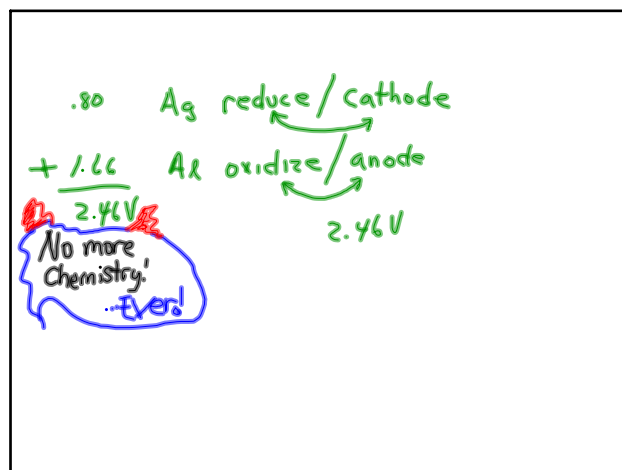 .80 Ag reduce / cathode
+ 1.66 Al oxidize / anode
2.46V
2.46V
No more
Chemistry!
...Ever!